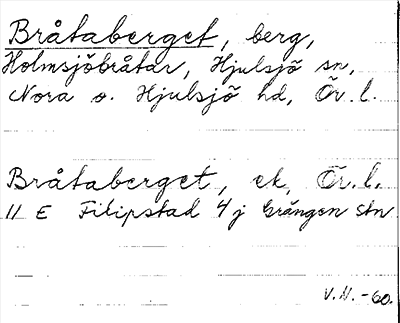 Bråtaberget, berg,
Holmsjöbråtar, Hjulsjö sn,
Nora o. Hjulsjö hd, Ör. l.
Bråtaberget, ek, Ör. l.
11 E Filipstad 4 j Grängen stn
V. N. -60.